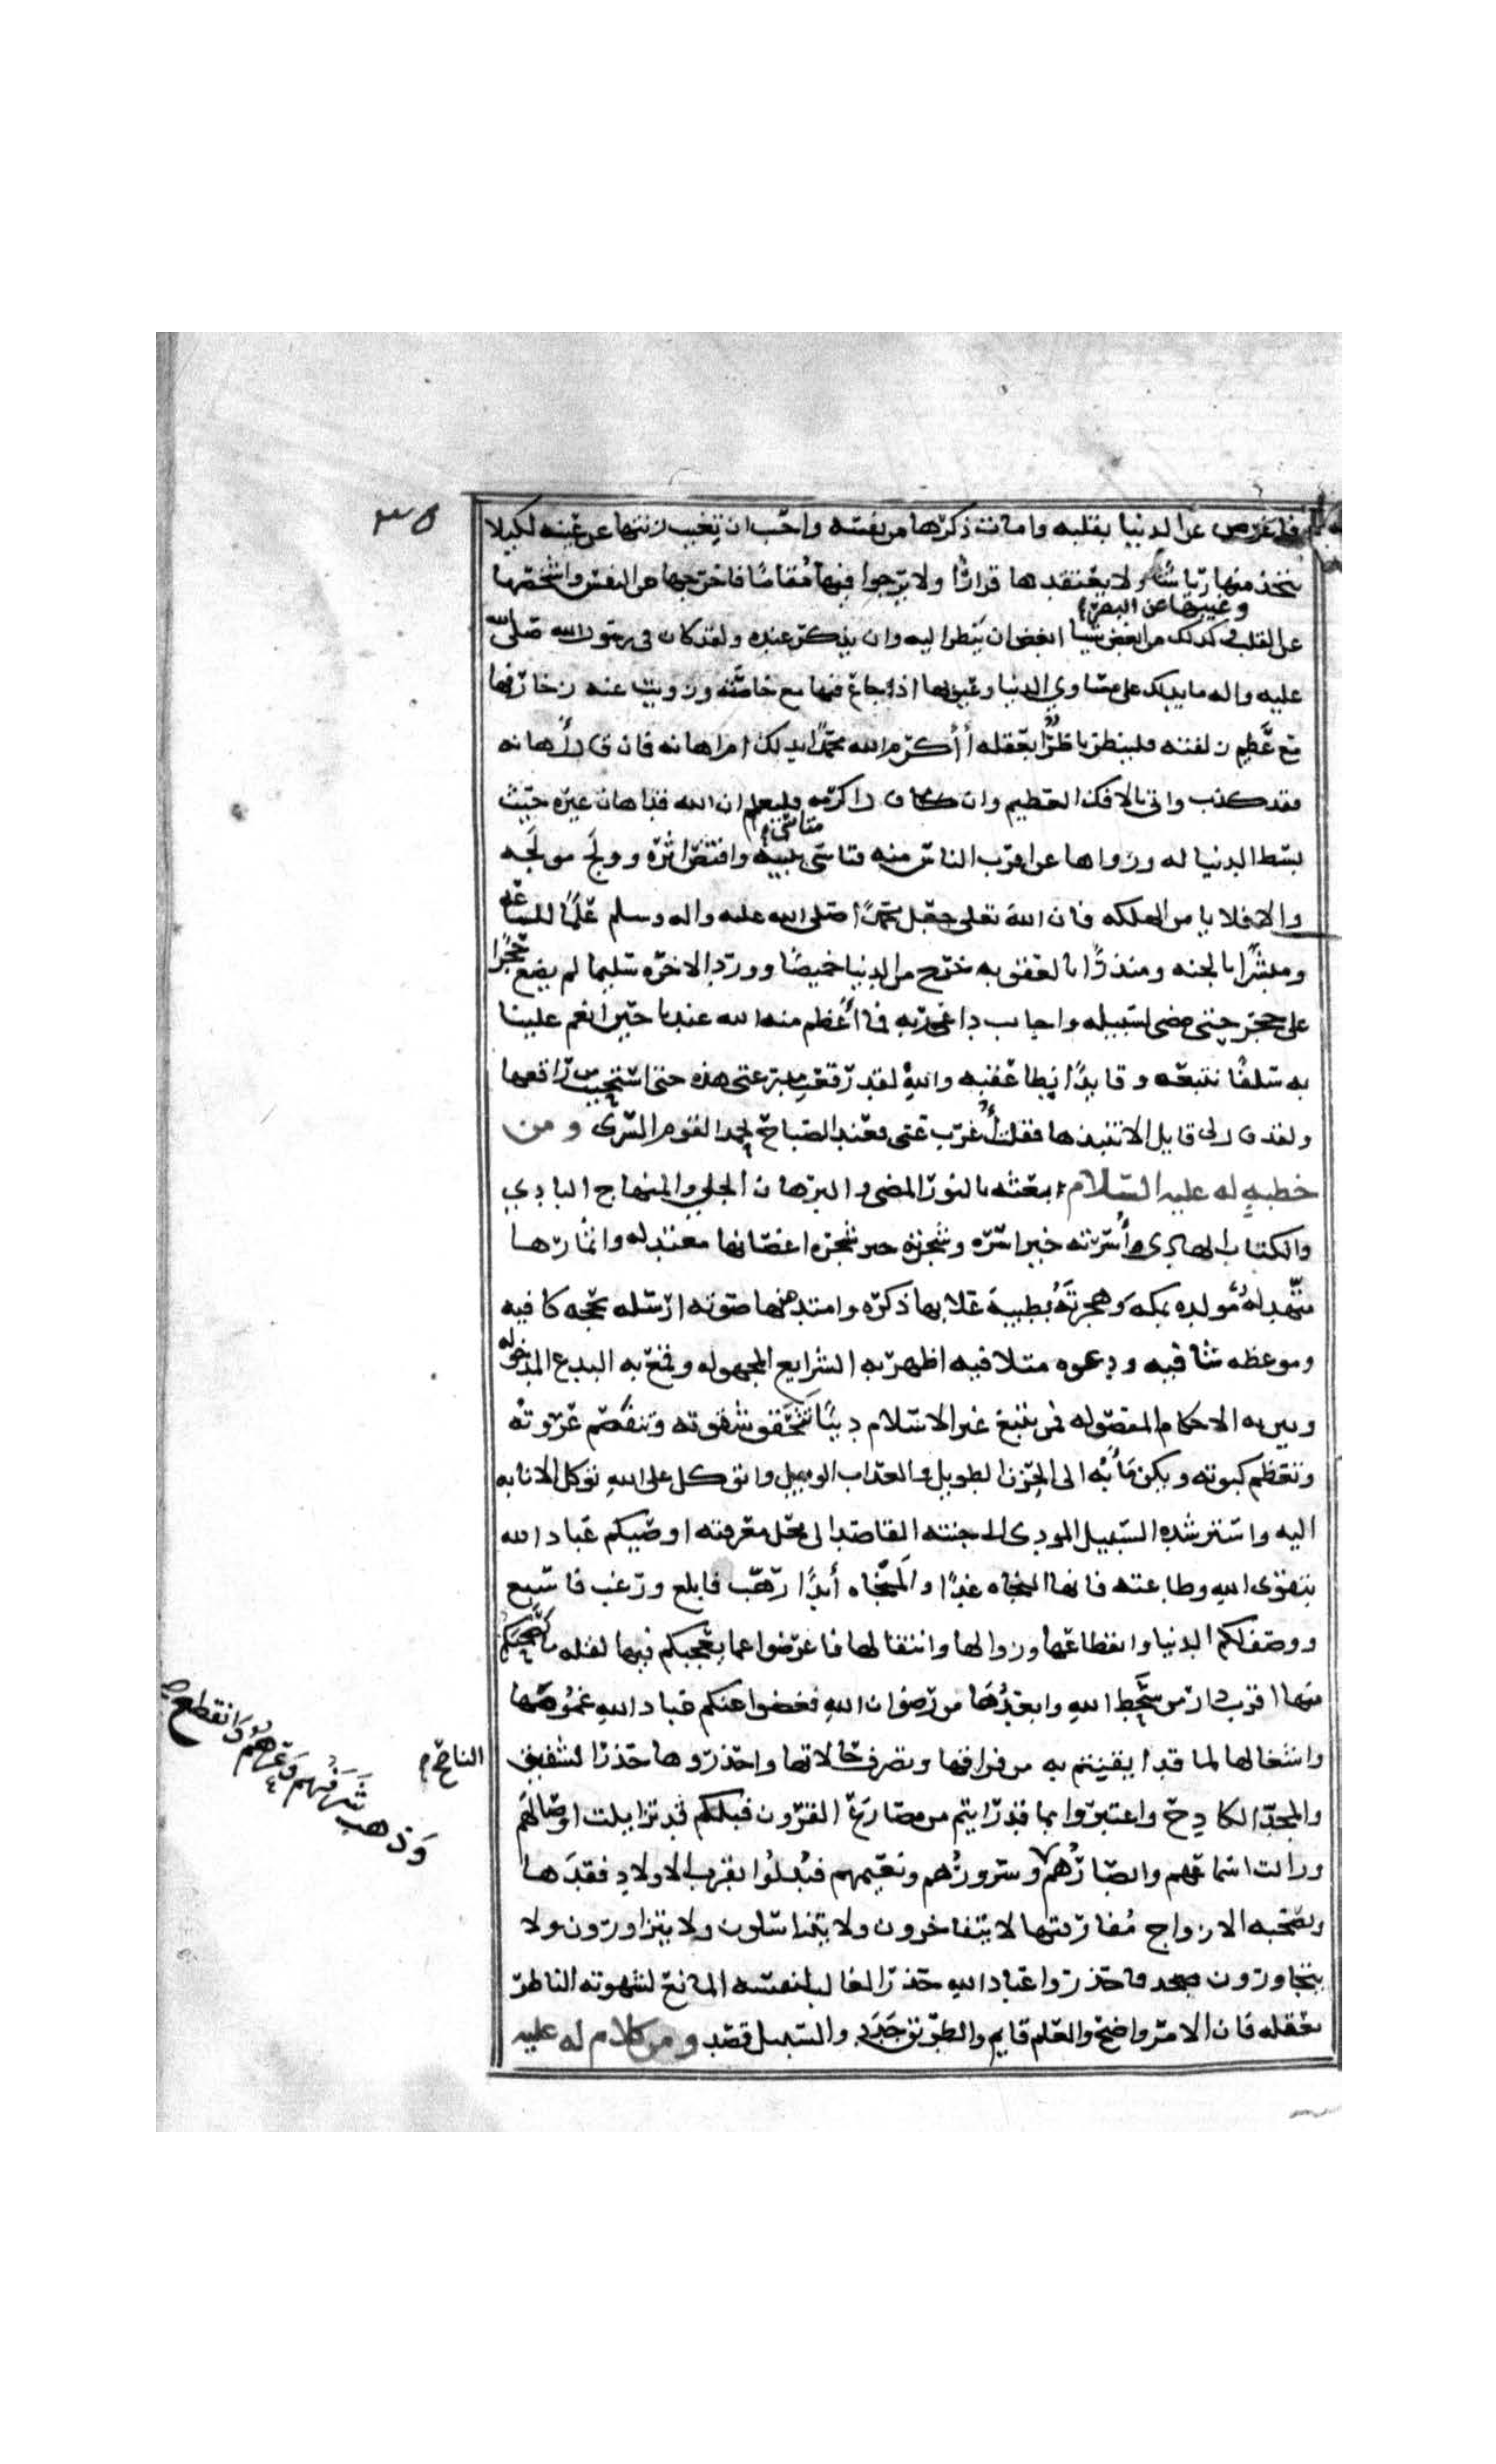 ٣٥
فاعرض عن الدنيا بقلبه وامات ذكرها من نفسه واحب ان يغيب زينتها عن عينه لكيلا
يتخذ منها رياشًا ولا يعتقدها قرارًا ولا يرجوا فيها مُقامًا فاخرجها من النفس واشخصها
وغيبها عن البصر
عن القلب كذلك من ابغض شيًا ابغض ان ينظر اليه وان يذكر عنده ولقد كان في رسول الله صلى الله
عليه واله ما يدلك على مساوي الدنيا وعيوبها اذ جاع فيها مع خاصته وزويت عنه زخارفها
مع عظيم زلفته فلينظر ناظرٌ بعقله أأكرم الله محمدًا بذلك ام اهانه فان قال أهانه
فقد كذب واتى بالافك العظيم وان كان قال اكرمه فليعلم ان الله قد اهان غيره حيث
بسط الدنيا له وزواها عن اقرب الناس منه فتاسى بنبيه واقتص اثره وولج مولجه
متأسٍّ
والا فلا يامن الهلكه فان الله تعلى جعل محمدًا صلى الله عليه واله وسلم علمًا للساعه
ومبشرًا بالجنه ومنذرًا بالعقوبه خرج من الدنيا خميصًا وورد الاخره سليما لم يضع حجرًا
على حجر حتى مضى لسبيله واجاب داعي ربه فما أعظم منه الله عندنا حين انعم علينا
به سلفًا نتبعه وقايدًا نطا عقبه والله لقد رقعت مدرعتى هذه حتى استحييت من راقعها
ولقد قال لى قايل الا تنبذها فقلت أغرب عنى فعند الصباح يحمد القوم السرى ومن
خطبةٍ له عليه السلام ابتعثه بالنور المضى والبرهان الجلي والمنهاج البادي
والكتاب الهادى أسرته خير اسره وشجرته خير شجره اغصانها معتدله واثمارها
متهدله مولده بمكه وهجرته بطيبة علا بها ذكره وامتد منها صوته ارسله بحجه كافيه
وموعظه شافيه ودعوه متلافيه اظهر به الشرايع المجهوله وقمع به البدع المدخوله
وبين به الاحكام المفصوله فمن يتبع غير الاسلام دينًا تتحقق شقوته وتنفصم عروته
وتعظم كبوته ويكن مأبه الى الحزن الطويل والعذاب الوبيل واتوكل على الله توكل الانابه
اليه واسترشده السبيل المودى الى جنته القاصد الى محل معرفته اوصيكم عباد الله
بتقوى الله وطاعته فانها النجاه غدًا والمنجاه أبدًا رهّب فابلغ ورغب فاسبغ
ووصف لكم الدنيا وانقطاعها وزوالها وانتقالها فاعرضوا عما يعجبكم فيها لقله ما يصحبكم
منها اقرب دار من سخط الله وابعدُها من رضوان الله فغضوا عنكم عباد الله غمُومها
واشغالها لما قد ايقنتم به من فراقها وتصرف حالاتها واحذروها حذر الشفيق
الناصح
والمجدّ الكادح واعتبروا بما قد رايتم من مصارع القرون قبلكم قد تزايلت اوصالهم
وزالت اسماعهم وابصارُهم وسرورُهم ونعيمهم فبُدلُوا بقرب الاولاد فقدَها
وذهب شَرَفُهم وعِزّهُم وانقطع
وبصحبه الازواج مُفارقتها لا يتفاخرون ولا يتناسلون ولا يتزاورون ولا
يتجاورون فاحذروا عباد الله حذر الغالب لنفسه المانع لشهوته الناظر
بعقله فان الامر واضح والعلم قايم والطريق جَدَد والسبيل قصد ومن كلام له عليه